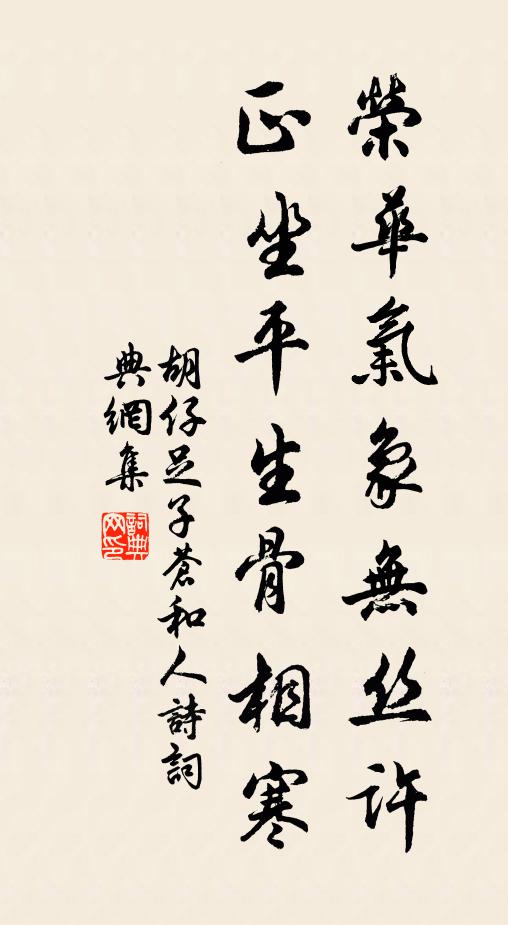 榮華氣象無丝許
正坐平生骨相寒
胡仔足子蒼和人詩詞
典網集
詞典網印